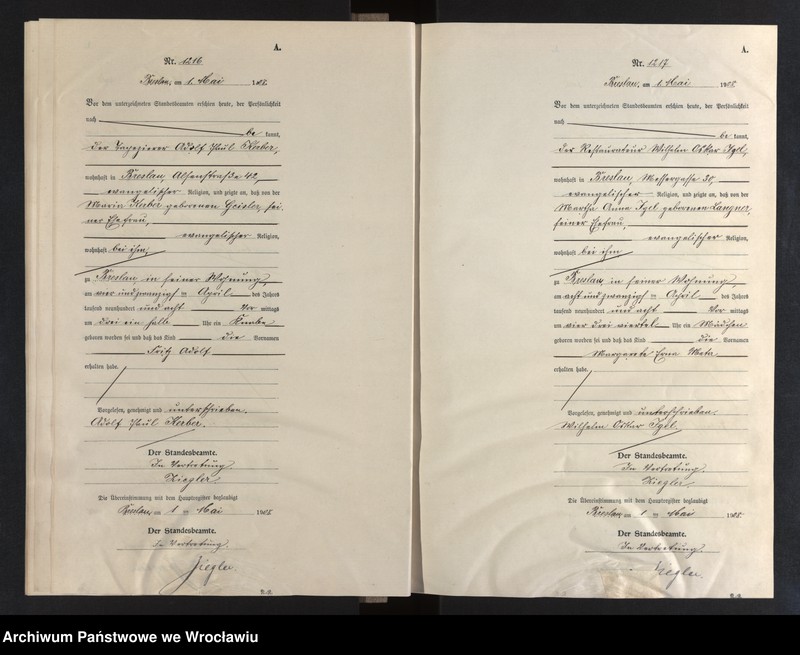 A.
Nr. 1216
Breslau, am 1. Mai 1908.
Vor dem unterzeichneten Standesbeamten erschien heute, der Persönlichkeit
nach
be kannt,
der Tapezierer Adolf Paul Kerber,
wohnhaft in Breslau, Alsenstraße 42,
evangelischer Religion, und zeigte an, daß von der
Maria Kerber geborenen Geisler, sei-
ner Ehefrau,
evangelischer Religion,
wohnhaft bei ihm,
zu Breslau, in seiner Wohnung,
am vier und zwanzigsten April des Jahres
tausend neunhundert und acht Vor mittags
um drei ein halb Uhr ein Knabe
geboren worden sei und daß das Kind die Vornamen
Fritz Adolf
erhalten habe.
Vorgelesen, genehmigt und unterschrieben.
Adolf Paul Kerber.
Der Standesbeamte.
In Vertretung.
Ziegler.
Die Übereinstimmung mit dem Hauptregister beglaubigt
Breslau, am 1 ten Mai 1908
Der Standesbeamte.
In Vertretung.
Ziegler
A.
Nr. 1217
Breslau, am 1. Mai 1908
Vor dem unterzeichneten Standesbeamten erschien heute, der Persönlichkeit
nach
be kannt,
der Restaurateur Wilhelm Oskar Igel,
wohnhaft in Breslau, Messergasse 30,
evangelischer Religion, und zeigte an, daß von der
Martha Anna Igel geborenen Langner,
seiner Ehefrau,
evangelischer Religion,
wohnhaft bei ihm
zu Breslau, in seiner Wohnung,
am acht und zwanzigsten April des Jahres
tausend neunhundert und acht Vor mittags
um vier drei viertel Uhr ein Mädchen
geboren worden sei und daß das Kind die Vornamen
Margarete Erna Meta
erhalten habe.
Vorgelesen, genehmigt und unterschrieben.
Wilhelm Oskar Igel.
Der Standesbeamte.
In Vertretung.
Ziegler.
Die Übereinstimmung mit dem Hauptregister beglaubigt
Breslau, am 1 ten Mai 1908.
Der Standesbeamte.
In Vertretung.
Ziegler.
Archiwum Państwowe we Wrocławiu